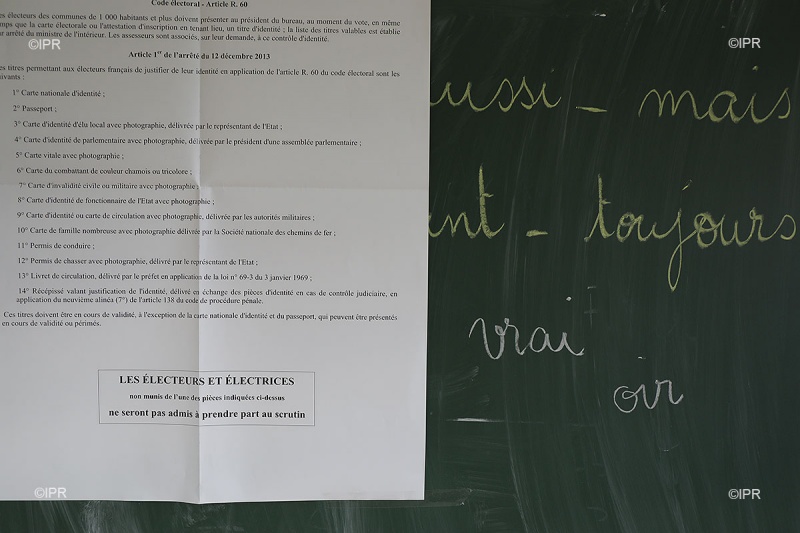 Code électoral - Article R. 60
es électeurs des communes de 1 000 habitants et plus doivent présenter au président du bureau, au moment du vote, en même
mps que la carte électorale ou l'attestation d'inscription en tenant lieu, un titre d'identité ; la liste des titres valables est établie
r arrêté du ministre de l'intérieur. Les assesseurs sont associés, sur leur demande, à ce contrôle d'identité.
Article 1er de l'arrêté du 12 décembre 2013
es titres permettant aux électeurs français de justifier de leur identité en application de l'article R. 60 du code électoral sont les
ivants :
1° Carte nationale d'identité ;
2° Passeport ;
3° Carte d'identité d'élu local avec photographie, délivrée par le représentant de l'Etat ;
4° Carte d'identité de parlementaire avec photographie, délivrée par le président d'une assemblée parlementaire ;
5° Carte vitale avec photographie ;
6° Carte du combattant de couleur chamois ou tricolore ;
7° Carte d'invalidité civile ou militaire avec photographie ;
8° Carte d'identité de fonctionnaire de l'Etat avec photographie ;
9° Carte d'identité ou carte de circulation avec photographie, délivrée par les autorités militaires ;
10° Carte de famille nombreuse avec photographie délivrée par la Société nationale des chemins de fer ;
11° Permis de conduire ;
12° Permis de chasser avec photographie, délivré par le représentant de l'Etat ;
13° Livret de circulation, délivré par le préfet en application de la loi n° 69-3 du 3 janvier 1969 ;
14° Récépissé valant justification de l'identité, délivré en échange des pièces d'identité en cas de contrôle judiciaire, en
application du neuvième alinéa (7°) de l'article 138 du code de procédure pénale.
Ces titres doivent être en cours de validité, à l'exception de la carte nationale d'identité et du passeport, qui peuvent être présentés
en cours de validité ou périmés.
LES ÉLECTEURS ET ÉLECTRICES
non munis de l'une des pièces indiquées ci-dessus
ne seront pas admis à prendre part au scrutin
ussi - mais
nt - toujours
vrai
oir
©IPR
©IPR
©IPR
©IPR